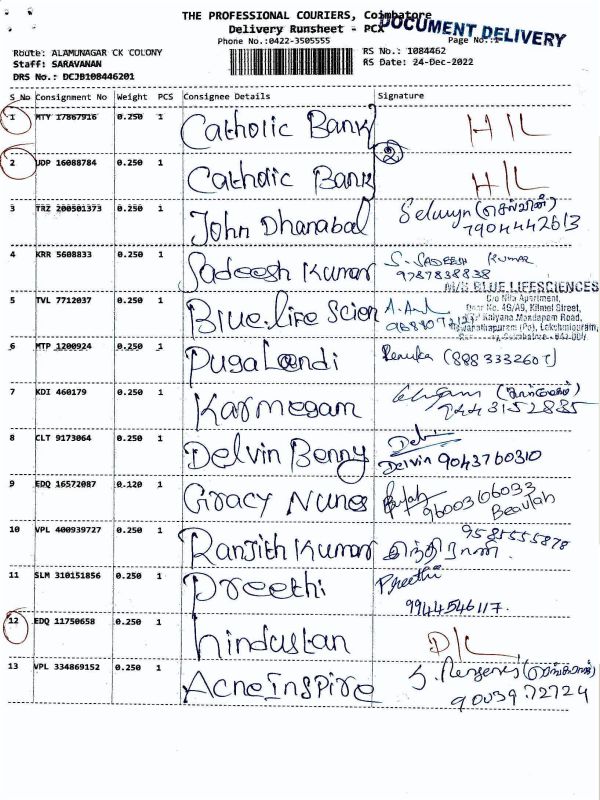 THE PROFESSIONAL COURIERS, Coimbatore
Delivery Runsheet - PCX
DOCUMENT DELIVERY
Phone No.:0422-3505555
Page No.:1
Route: ALAMUNAGAR CK COLONY
RS No.: 1084462
Staff: SARAVANAN
RS Date: 24-Dec-2022
DRS No.: DCJB108446201
S No Consignment No Weight PCS Consignee Details Signature
1 MTY 17867916 0.250 1 Catholic Bank H/L
2 UDP 16088784 0.250 1 Catholic Bank H/L
②
3 TRZ 200501373 0.250 1 John Dhanabal Selwyn (செல்வின்)
7904442613
4 KRR 5608833 0.250 1 Sadeesh Kumar S. SADEESH KUMAR
9787838838
5 TVL 7712037 0.250 1 Blue.life Scien
M/S BLUE LIFESCIENCES
Apartment,
4G/A9, Kilmel Street,
Kalyana Mandapam Road,
(Po), Lakshmipuram,
6 MTP 1200924 0.250 1 PugaLendi Renuka (8883332607)
7 KDI 460179 0.250 1 Karmegam
9443152885
8 CLT 9173064 0.250 1 Delvin Benny
Delvin 9043760310
9 EDQ 16572087 0.120 1 Gracy Nunes
9600366033
Beaulah
10 VPL 400939727 0.250 1 Ranjith Kumar 9585555878
இந்திராணி.
11 SLM 310151856 0.250 1 Preethi Preethi
9944546117.
12 EDQ 11750658 0.250 1 hindustan D/L
13 VPL 334869152 0.250 1 AcneInspire
9003972724